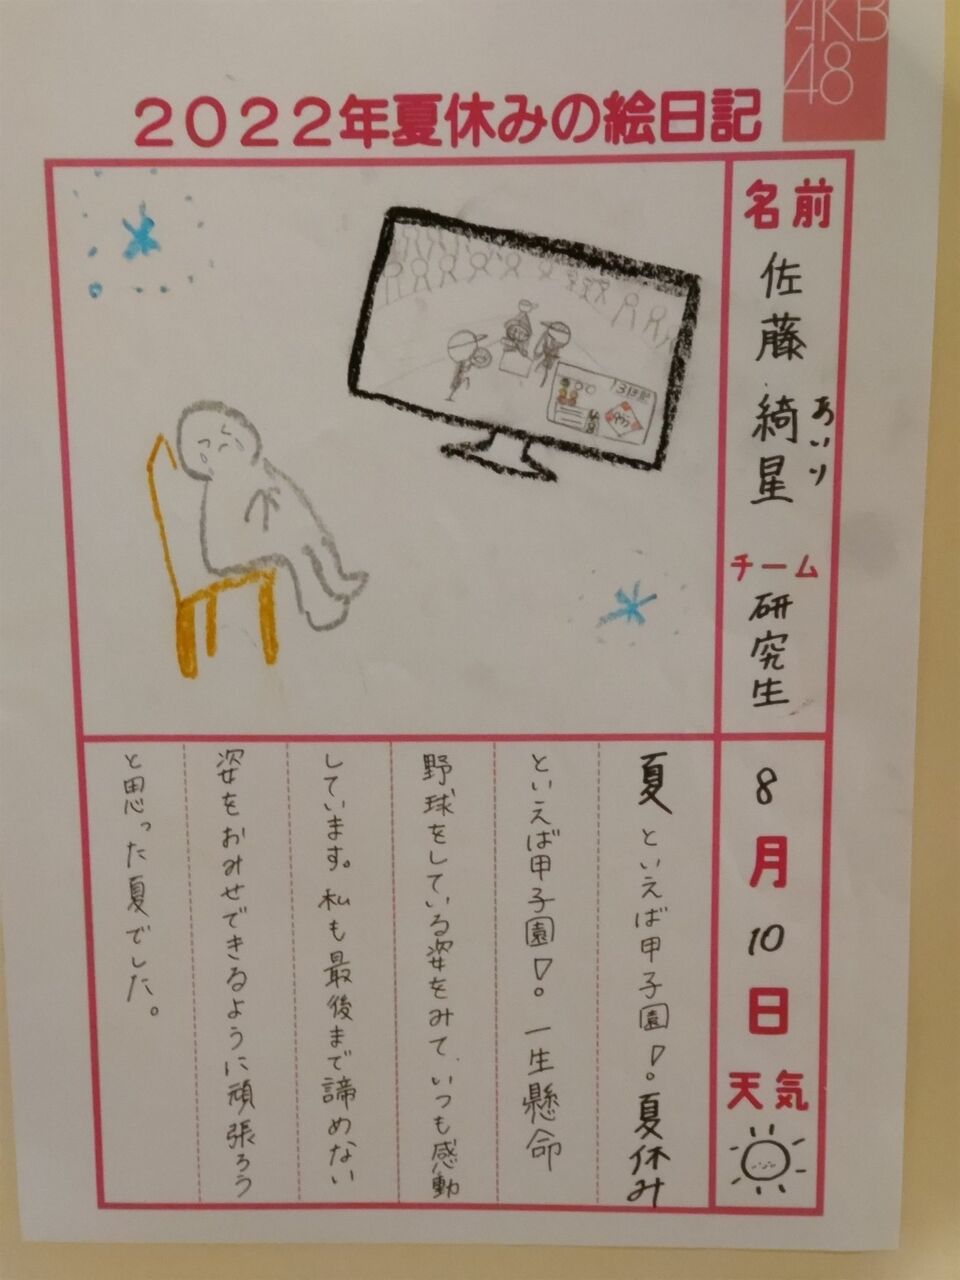 AKB
48
2022年夏休みの絵日記
名前
佐藤 綺星
あいり
チーム
研究生
8月10日
天気
夏といえば甲子園!。夏休み
といえば甲子園!。一生懸命
野球をしている姿をみて、いつも感動
しています。私も最後まで諦めない
姿をおみせできるように頑張ろう
と思った夏でした。